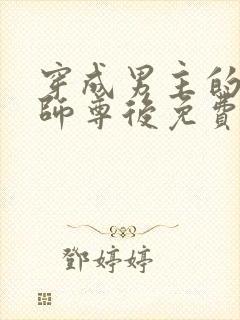 穿成男主的
師尊後免費
鄧婷婷